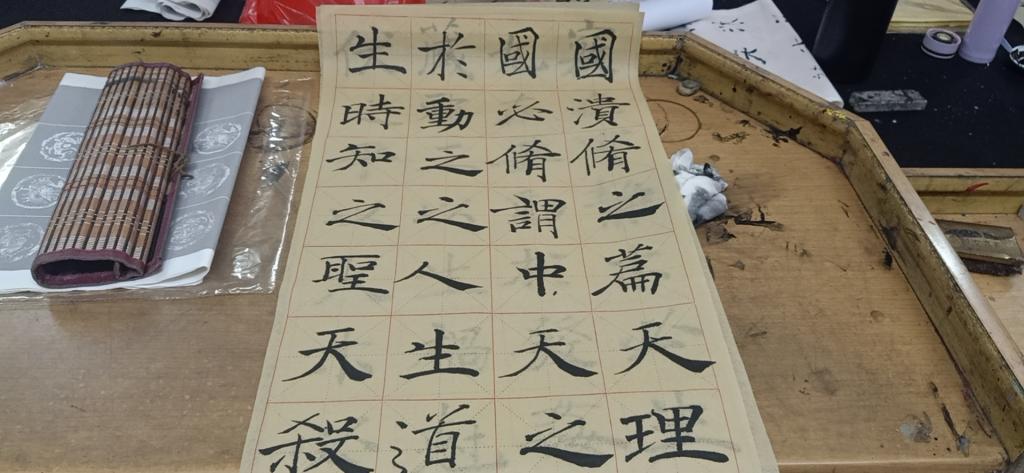 生於國國
時動必潰
知之脩脩
之之謂之
聖人中篇
天生天天
殺道之理